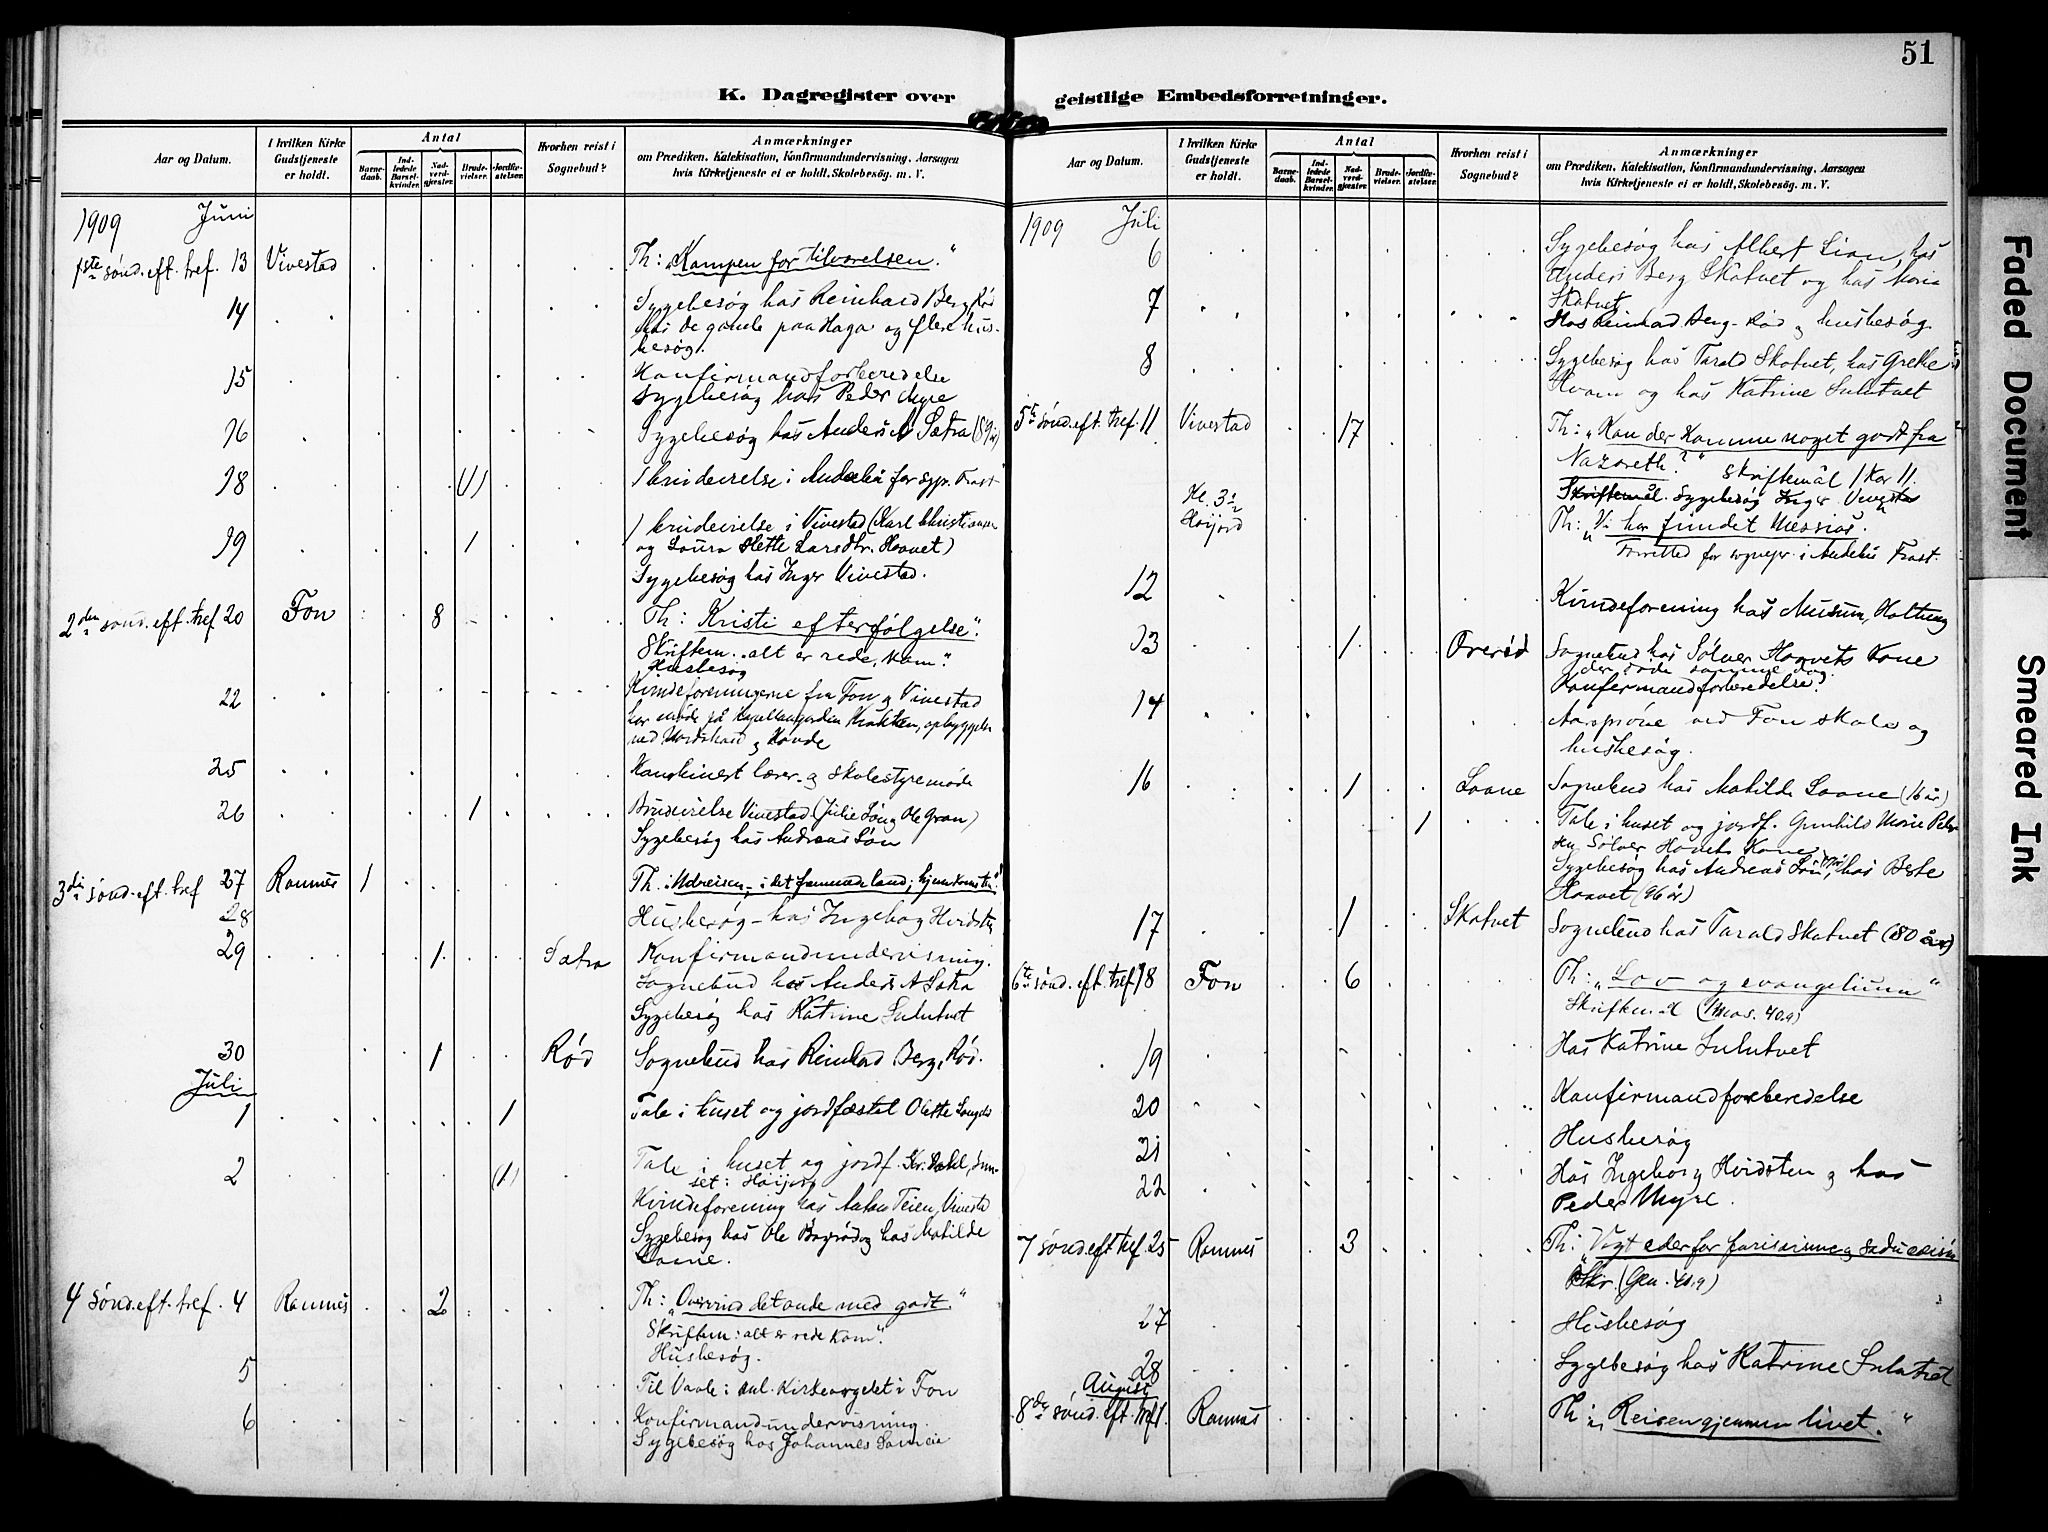 51
K. Dagregister over geistlige Embedsforretninger.
Aar og Datum.
I hvilken Kirke Gudstjeneste er holdt.
Antal
Barnedaab.
Indledede Barselkvinder.
Nadverdgjester.
Brudevielser.
Jordfæstelser.
Hvorhen reist i Sognebud?
Anmærkninger
om Prædiken, Katekisation, Konfirmandundervisning, Aarsagen
hvis Kirketjeneste ei er holdt, Skolebesøg. m. V.
1909 Juni
1ste sønd. eft. tref. 13 Vivestad Th: „Kampen for tilværelsen."
14 Sygebesøg hos Reinhard Berg Rød
hos de gamle paa Haga og flere hus-
besøg.
15 Konfirmandforberedelse
Sygebesøg hos Peder Myre
16 Sygebesøg hos Anders A Sætra
18 (1) 1 brudevielse i Andebu for sgpr. Frost
19 1 1 brudevielse i Vivestad (Karl Christiansen
og Laura Mette Larsdtr. Haavet)
Sygebesøg hos Inger Vivestad.
2den sønd. eft. tref 20 Fon 8 Th: Kristi efterfølgelse".
Skriftem. „alt er rede, kom".
Husbesøg
22 Kvindeforeningerne fra Fon og Vivestad
har møde på Kapellangården opbyggelse
ved
25 Kombinert lærer- og skolestyremøde
26 1 Brudevielse Vivestad (Julie Løn og Ole Gran)
Sygebesøg hos Andreas Løn
3die sønd. eft. tref 27 Ramnes 1 Th. „Udreisen, - i det fremmede land, hjemkomsten"
28 Husbesøg - hos Ingeborg Hvidsten
29 1 Sætra Konfirmandundervisning.
Sognebud hos Anders A Sætra
Sygebesøg hos Katrine Sulutvet
30 1 Rød Sognebud hos Reinhard Berg, Rød.
Juli
1 1 Tale i huset og jordfæstet Olette
2 (1) Tale i huset og jordf. Kr. Dahl,
Høijord
Kvindeforening hos Anton Teien, Vivestad
Sygebesøg hos Ole og hos Matilde
Laane.
4 sønd. eft. tref. 4 Ramnes 2 Th: „Overvind det onde med godt."
Skriftem: alt er rede kom".
Husbesøg.
5 Til Vaale: anl. kirkeorgelet i Fon
6 Konfirmandundervisning.
Sygebesøg hos Johannes
Aar og Datum.
I hvilken Kirke Gudstjeneste er holdt.
Antal
Barnedaab.
Indledede Barselkvinder.
Nadverdgjester.
Brudevielser.
Jordfæstelser.
Hvorhen reist i Sognebud?
Anmærkninger
om Prædiken, Katekisation, Konfirmandundervisning, Aarsagen
hvis Kirketjeneste ei er holdt, Skolebesøg. m. V.
1909 Juli
6 Sygebesøg hos Albert Lian, hos
Anders Berg Skatvet og hos Maria
Skatvet
7 Hos Reinhard Berg - Rød og husbesøg.
8 Sygebesøg hos Tarald Skatvet, hos Grethe
Kvam og hos Katrine Sulutvet
5te sønd. eft. tref. 11 Vivestad 17 Th: „Kan der komme noget godt fra
Nazareth?" Skriftemål 1 Kor 11.
Skriftemål. Sygebesøg Inger Vivestad
Kl. 3 1/2 Høijord Th: „Vi har fundet Messias.
Forretted for sognepr. i Andebu Frost.
12 Kvindeforening hos Musum, Holtung
13 1 Orerød Sognebud hos Sølver Haavets kone
der døde samme dag.
Konfirmandforberedelse.
14 Aarsprøve ved Fon skole og
husbesøg.
16 1 Laane Sognebud hos Matilde Laane (16 år)
1 Tale i huset og jordf. Gunhild Marie Peder-
sen Sølver Haavets kone
Sygebesøg hos Andreas hos Berte
Haavet (96 år)
17 1 Skatvet Sognebud hos Tarald Skatvet (80 år)
6te sønd. eft. tref 18 Fon 6 Th: „Lov og evangelium"
Skriftemål (1 Mos. 40.9)
19 Hos Katrine Sulutvet
20 Konfirmandforberedelse
21 Husbesøg
22 Hos Ingeborg Hvidsten og hos
Peder Myre.
7 sønd. eft. tref. 25 Ramnes 3 Th: „Vogt eder for farisæisme og
Skr. (Gen. 40.9)
27 Husbesøg
28 Sygebesøg hos Katrine Sulutvet
August
8de sønd. eft. tref 1. Ramnes Th: „Reisen gjennem livet."
Faded Document
Smeared Ink